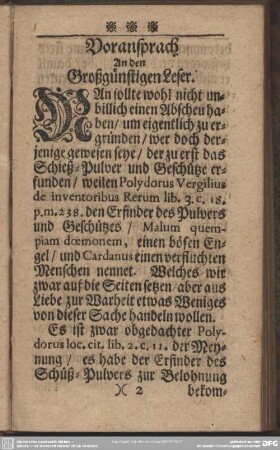 Voransprach
An den
Großgünstigen Leser.
MAn sollte wohl nicht un-
billich einen Abscheu ha-
ben/ um eigentlich zu er-
gründen/ wer doch der-
jenige gewesen seye/ der zu erst das
Schieß-Pulver und Geschütze er-
funden/ weilen Polydorus Vergilius
de inventoribus Rerum lib. 3. c. 18.
p.m. 238. den Erfinder des Pulvers
und Geschützes/ Malum quem-
piam dœmonem, einen bösen En-
gel/ und Cardanus einen verfluchten
Menschen nennet. Welches wir
zwar auf die Seiten setzen/ aber aus
Liebe zur Warheit etwas Weniges
von dieser Sache handeln wollen.
Es ist zwar obgedachter Poly-
dorus loc. cit. lib. 2. c. 11. der Mey-
nung/ es habe der Erfinder des
Schüß-Pulvers zur Belohnung
)( 2 bekom-